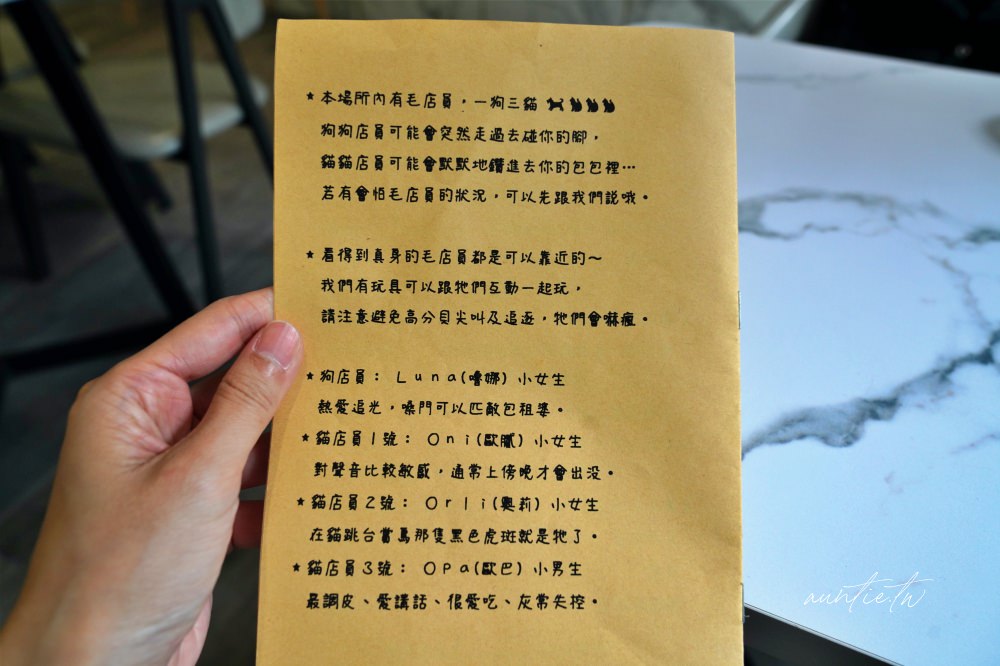 ★本場所內有毛店員，一狗三貓
狗狗店員可能會突然走過去碰你的腳，
貓貓店員可能會默默地鑽進去你的包包裡…
若有會怕毛店員的狀況，可以先跟我們說哦。
★看得到真身的毛店員都是可以靠近的～
我們有玩具可以跟牠們互動一起玩，
請注意避免高分貝尖叫及追逐，牠們會嚇瘋。
★狗店員：Luna(嚕娜) 小女生
熱愛追光，嗓門可以匹敵包租婆。
★貓店員1號：Oni(歐膩) 小女生
對聲音比較敏感，通常上傍晚才會出沒。
★貓店員2號：Orli(奧莉) 小女生
在貓跳台當鳥那隻黑色虎斑就是牠了。
★貓店員3號：Opa(歐巴) 小男生
最調皮、愛講話、很愛吃、灰常失控。
auntie.tw